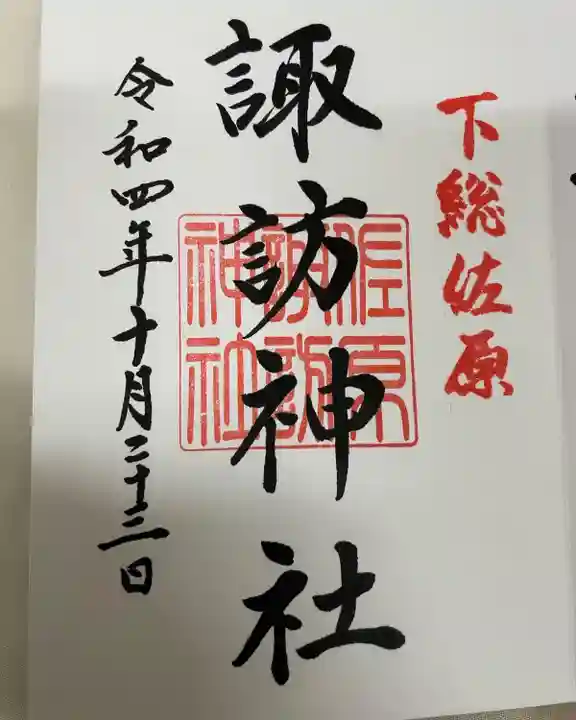 下総佐原
諏訪神社
佐原
諏訪
神社
令和四年十月二十三日